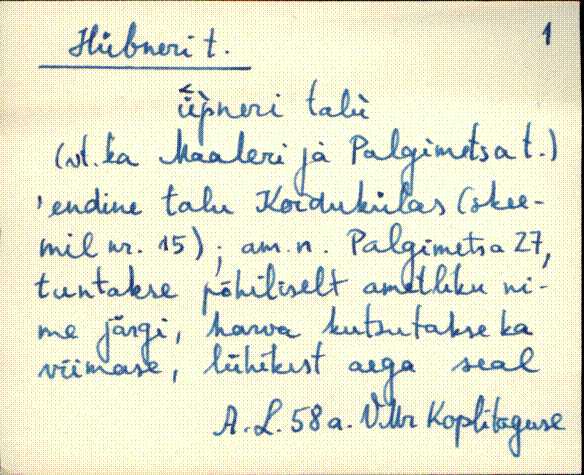 Hübneri t.
1
üpneri talù
(vt. ka Maaleri ja Palgimetsa t.)
'endine talu Koidukülas (skee-
mil nr. 15); am. n. Palgimetsa 27,
tuntakse põhiliselt ametliku ni-
me järgi, harva kutsutakse ka
viimase, lühikest aega seal
A. L. 58 a. V.Mr Koplitaguse